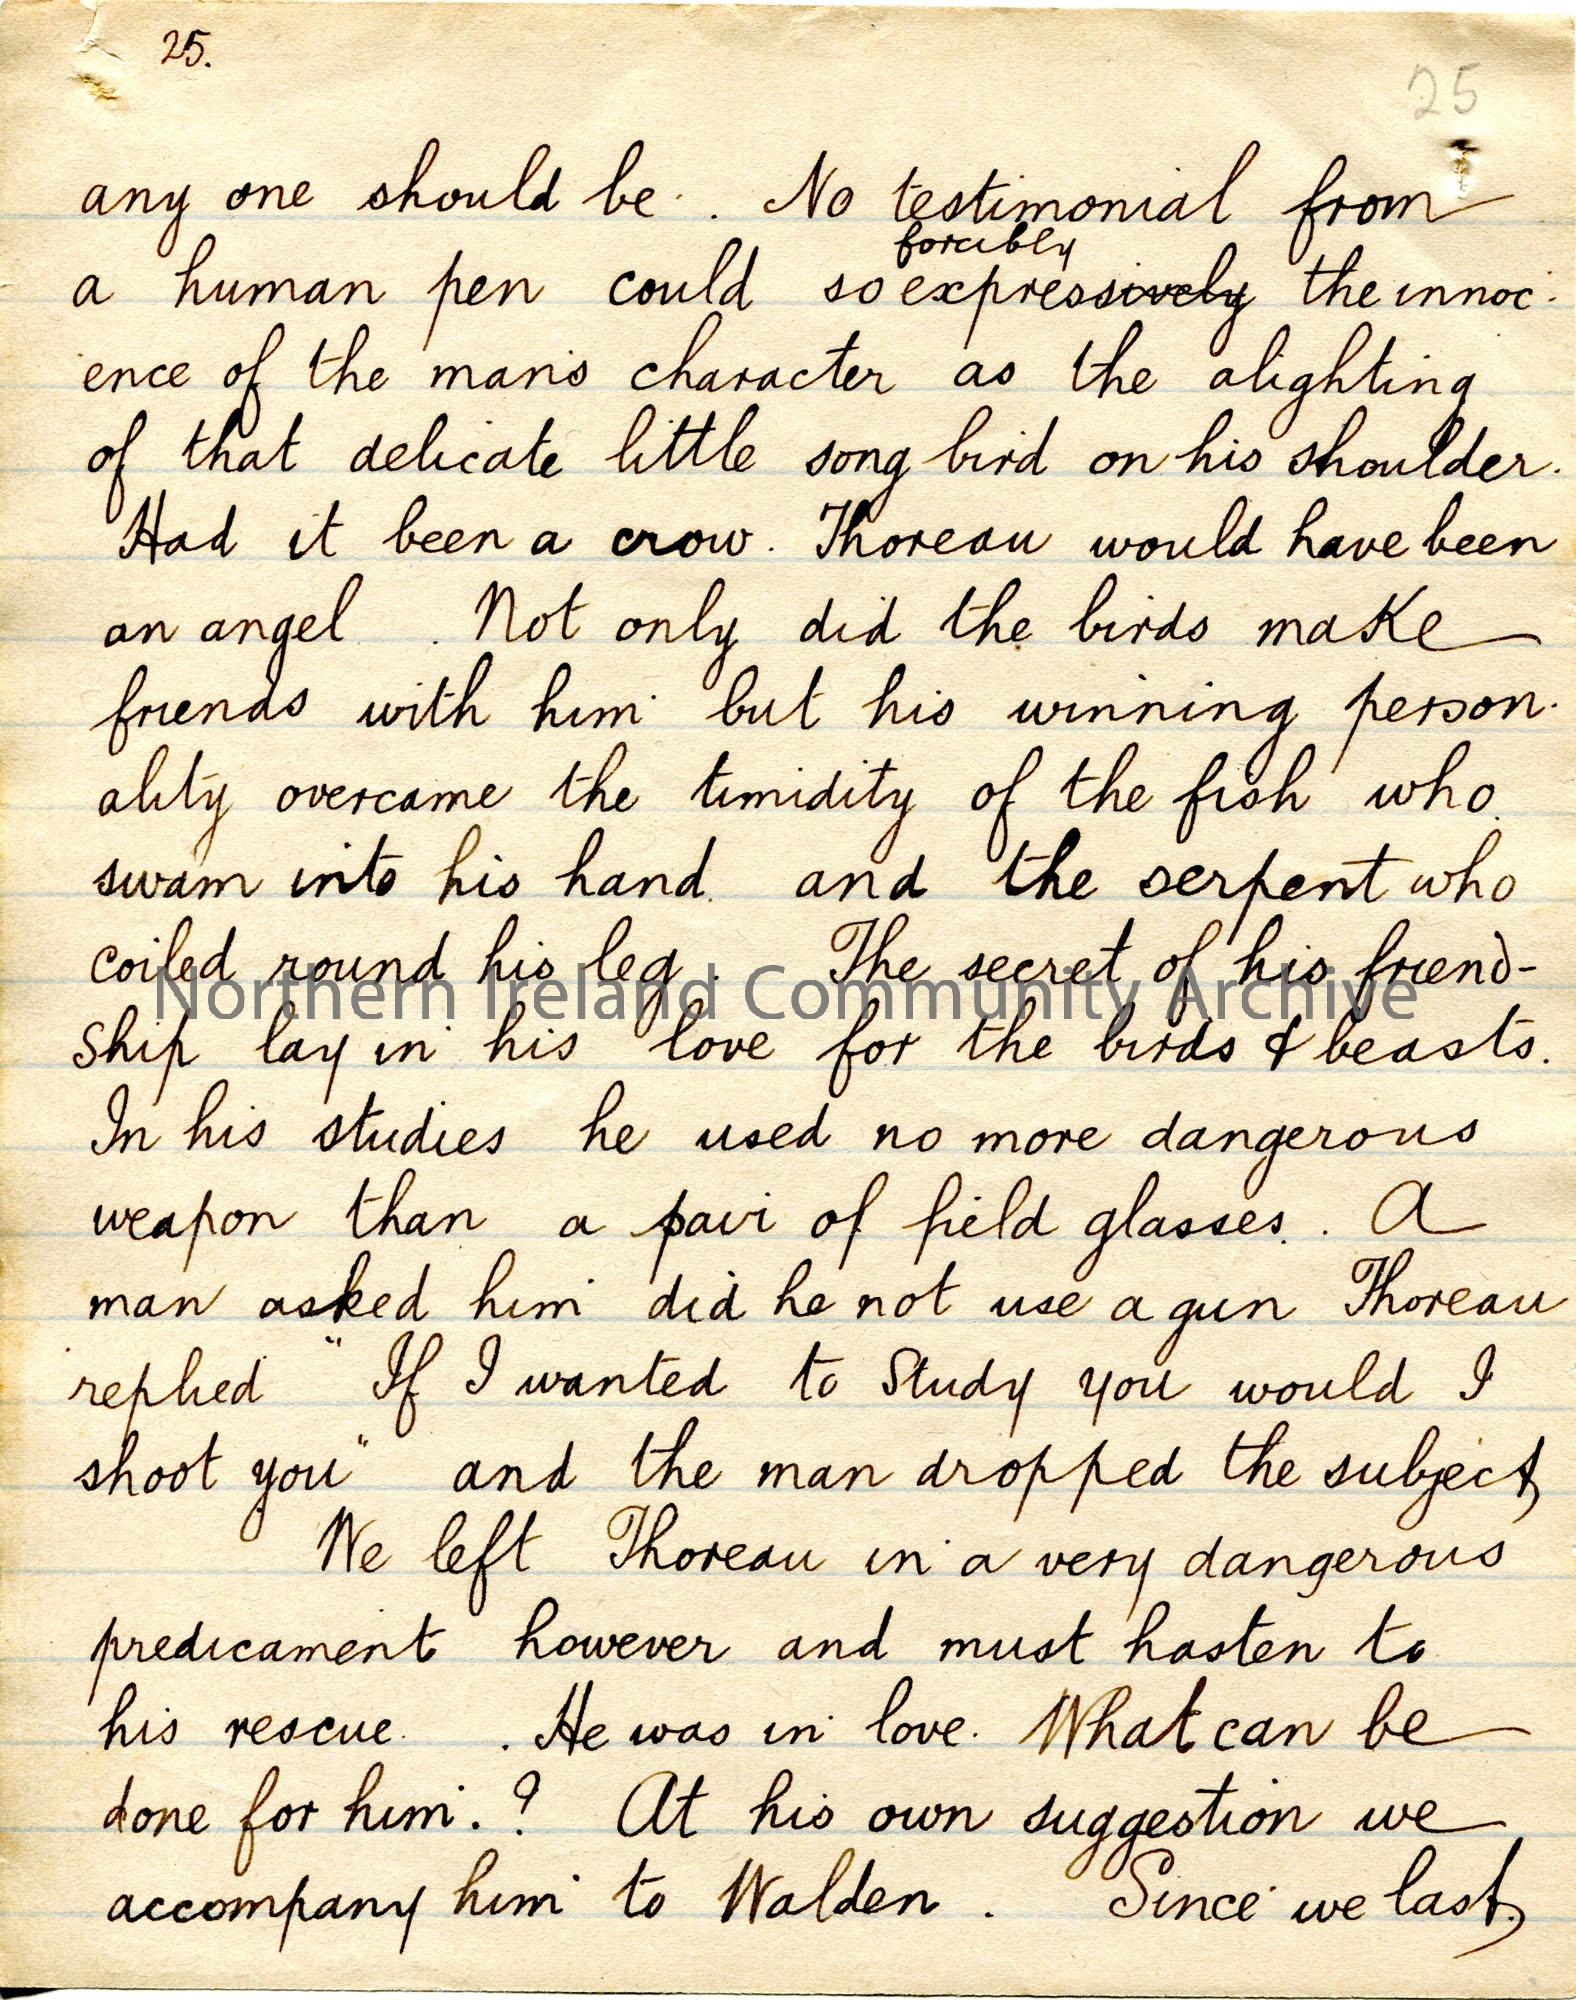 25.
25
any one should be. No testimonial from
forcibly
a human pen could so expressively the innoc-
ence of the man's character as the alighting
of that delicate little song bird on his shoulder.
Had it been a crow. Thoreau would have been
an angel. Not only did the birds make
friends with him but his winning person-
ality overcame the timidity of the fish who
swam into his hand. and the serpent who
coiled round his leg. The secret of his friend-
Northern Ireland Community Archive
ship lay in his love for the birds & beasts.
In his studies he used no more dangerous
weapon than a pair of field glasses. A
man asked him did he not use a gun Thoreau
replied "If I wanted to study you would I
shoot you" and the man dropped the subject,
We left Thoreau in a very dangerous
predicament however and must hasten to
his rescue. He was in love. What can be
done for him.? At his own suggestion we
accompany him to Walden. Since we last,